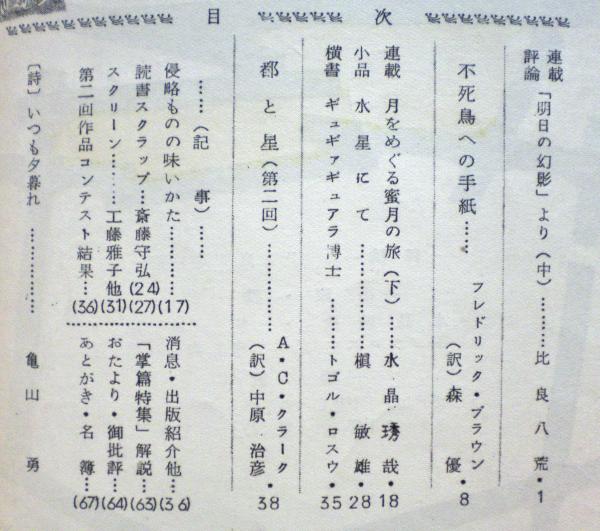 目次
連載評論 「明日の幻影」より(中)………比良八荒・1
不死鳥への手紙……フレドリック・ブラウン
(訳)森優・8
連載 月をめぐる蜜月の旅(下)……水晶琇哉・18
小品 水星にて……………槇敏雄・28
横書 ギュギァギュアラ博士……トゴル・ロスウ・35
都と星(第二回)……………A・C・クラーク
(訳)中原治彦・38
……(記事)……
侵略ものの味いかた…………(17)
読書スクラップ…斎藤守弘(24)(27)
スクリーン………工藤雅子他(31)
第二回作品コンテスト結果…(36)
消息・出版紹介他…(36)
「掌篇特集」解説…(63)
おたより・御批評…(64)
あとがき・名簿…(67)
〔詩〕いつも夕暮れ………………亀山勇